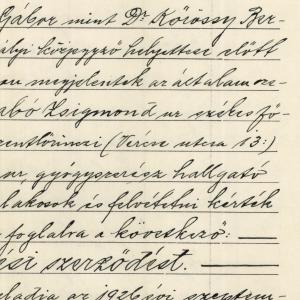 Gábor mint Dr Kőrössy Ber-
ályi közjegyző helyettese előtt
on megjelentek az általam sze-
abó Zsigmond ur székesfő-
zentlőrinczi (Vörösv utcza 13:)
ur gyógyszerész hallgató
lakosok és felvétetni kérték
foglalva a következő:
ési szerződést.
eladja az 1926 évi szeptem-